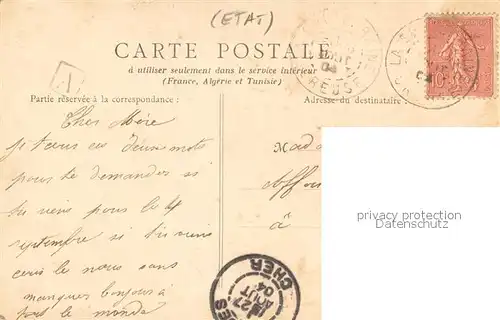 (ETAT)
CARTE POSTALE
à utiliser seulement dans le service intérieur
(France, Algérie et Tunisie)
A
Partie réservée à la correspondance:
Adresse du destinataire
Cher Mère
je tecris ces deux mots
pour te demander si
tu viens pour le 4
septembre si tu viens
ecris le nous sans
manquer bonjour à
tout le monde
Mad
à
privacy protection
Datenschutz
CREUSE
LA
10
CHER
27
AOUT
04